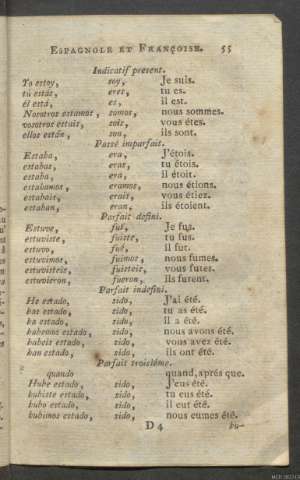 ESPAGNOLE ET FRANÇOISE. 55
Indicatif present.
Yo estoy, soy, Je suis.
tú estás, eres, tu es.
él está, es, il est.
Nosotros estamos, somos, nous sommes.
vosotros estais, sois, vous étes.
ellos están, son, ils sont.
Passé imparfait.
Estaba, era, J'étois.
estabas, eras, tu étois.
estaba, era, il étoit.
estabamos, eramos, nous étions.
estabais, erais, vous étiez.
estaban, eran, ils étoient.
Parfait defini.
Estuve, fuí, Je fus.
estuviste, fuiste, tu fus.
estuvo, fué, il fut.
estuvimos, fuimos, nous fumes.
estuvisteis, fuisteis, vous futes.
estuvieron, fueron, ils furent.
Parfait indefini.
He estado, sido, J'ai été.
has estado, sido, tu as été.
ha estado, sido, il a été.
habemos estado, sido, nous avons été.
habeis estado, sido, vous avez été.
han estado, sido, ils ont été.
Parfait troisiéme.
quando quand, aprés que.
Hube estado, sido, J'eus été.
hubiste estado, sido, tu eus été.
hubo estado, sido, il eut été.
hubimos estado, sido, nous eumes été.
D 4 hu-